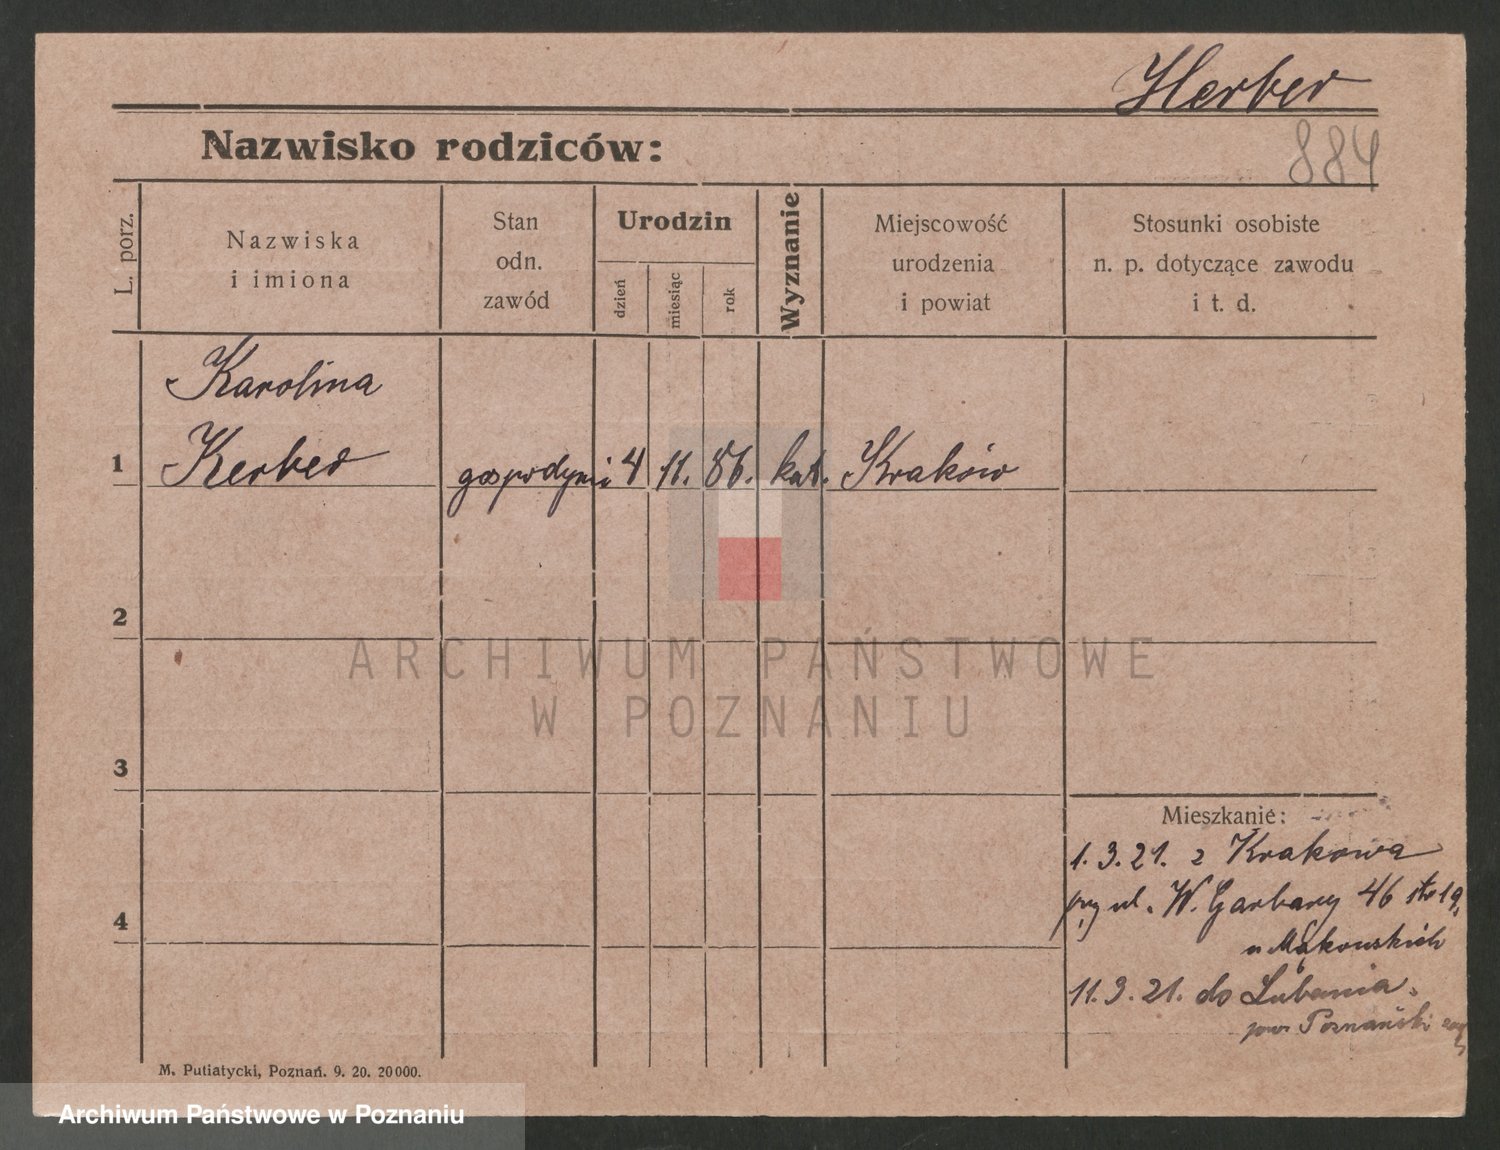 Kerber
884
Nazwisko rodziców:
L. porz.
Nazwiska
i imiona
Stan
odn.
zawód
Urodzin
dzień
miesiąc
rok
Wyznanie
Miejscowość
urodzenia
i powiat
Stosunki osobiste
n. p. dotyczące zawodu
i t. d.
Karolina
1 Kerber gospodyni 4 11. 86. kat. Kraków
2
ARCHIWUM PAŃSTWOWE
W POZNANIU
3
Mieszkanie:
1. 3. 21. z Krakowa
przy ul. W. Garbary 46 str 19.
4
u Mąkowskich
11. 3. 21. do Lubania.
pow. Poznański
M. Putiatycki, Poznań. 9. 20. 20000.
Archiwum Państwowe w Poznaniu